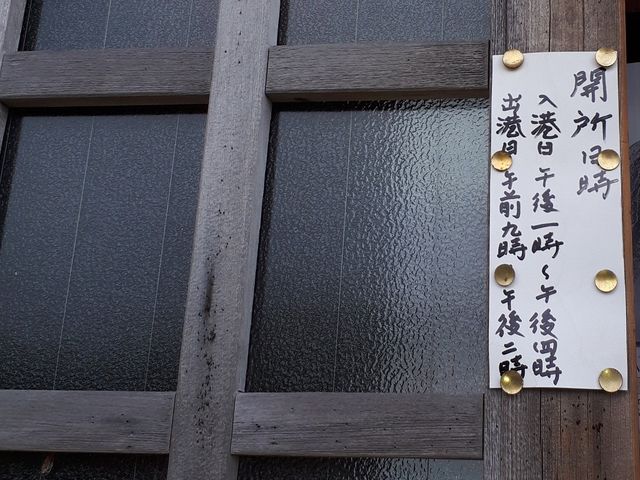 開所日時
入港日 午後一時～午後四時
出港日 午前九時 午後二時